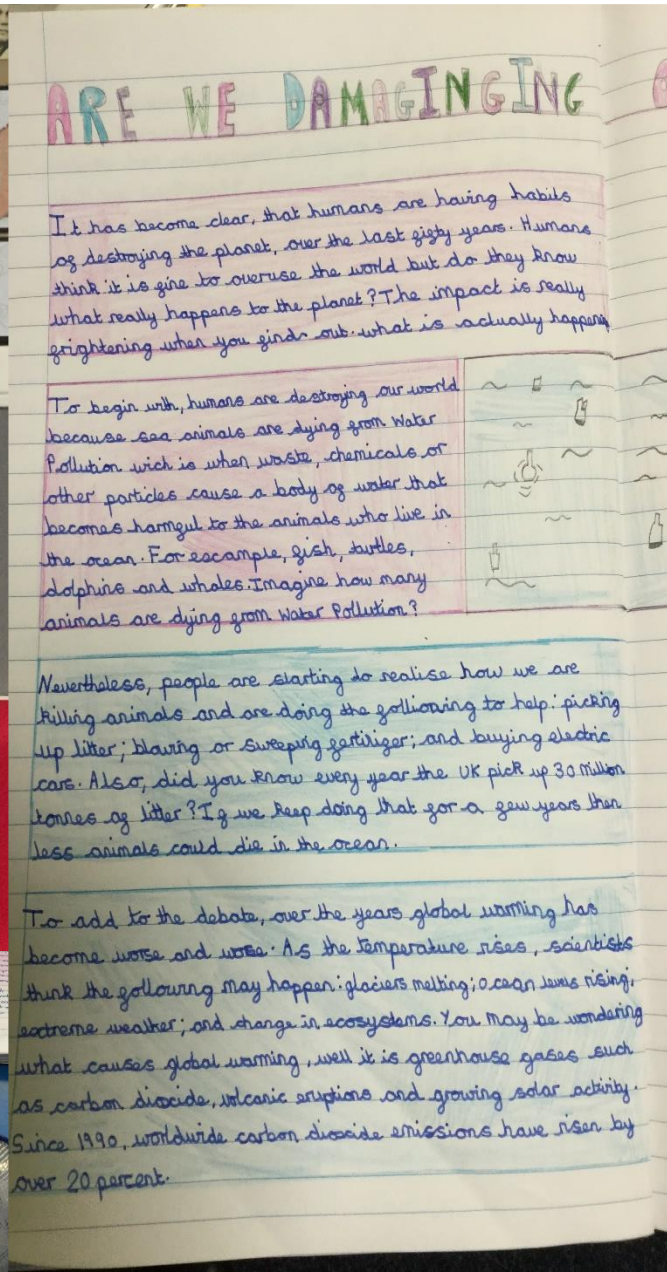 ARE WE DAMAGINGING
It has become clear, that humans are having habits
of destroying the planet, over the last fifty years. Humans
think it is fine to overuse the world but do they know
what really happens to the planet? The impact is really
frightening when you find out what is actually happening
To begin with, humans are destroying our world
because sea animals are dying from Water
Pollution wich is when waste, chemicals or
other particles cause a body of water that
becomes harmful to the animals who live in
the ocean. For example, fish, turtles,
dolphins and whales. Imagine how many
animals are dying from Water Pollution?
Nevertheless, people are starting to realise how we are
killing animals and are doing the following to help: picking
up litter; blowing or sweeping fertiliger; and buying electric
cars. Also, did you know every year the UK pick up 30 million
tonnes of litter? If we keep doing that for a few years then
less animals could die in the ocean.
To add to the debate, over the years global warming has
become worse and worse. As the temperature rises, scientists
think the following may happen: glaciers melting; ocean levels rising,
extreme weather; and change in ecosystems. You may be wondering
what causes global warming, well it is greenhouse gases such
as carbon dioxide, volcanic eruptions and growing solar activity.
Since 1990, worldwide carbon dioxide emissions have risen by
over 20 percent.